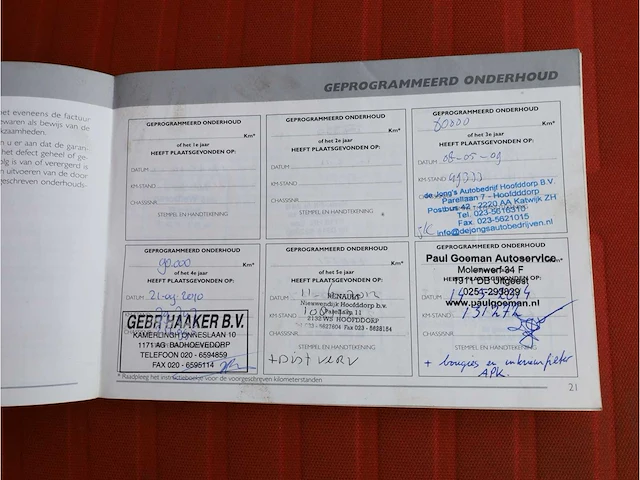 et eveneens de factuur
waren als bewijs van de
kzaamheden.
n u er aan dat de garan-
het defect geheel of ge-
olg is van of verergerd is
n uitvoeren van de door
geschreven onderhouds-
GEPROGRAMMEERD ONDERHOUD
GEPROGRAMMEERD ONDERHOUD
Km*
of het 1e jaar
HEEFT PLAATSGEVONDEN OP:
DATUM
KM-STAND
CHASSISNR.
STEMPEL EN HANDTEKENING
GEPROGRAMMEERD ONDERHOUD
Km*
of het 2e jaar
HEEFT PLAATSGEVONDEN OP:
DATUM
KM-STAND
CHASSISNR.
STEMPEL EN HANDTEKENING
GEPROGRAMMEERD ONDERHOUD
Km*
of het 3e jaar
HEEFT PLAATSGEVONDEN OP:
DATUM
KM-STAND
de Jong's Autobedrijf Hoofddorp B.V.
Parellaan 7 - Hoofddorp
Postbus 42 - 2220 AA Katwijk ZH
Tel. 023-5616310
Fax. 023-5621015
info@dejongsautobedrijven.nl
GEPROGRAMMEERD ONDERHOUD
90.000 Km*
of het 4e jaar
HEEFT PLAATSGEVONDEN OP:
DATUM 21-09-2010
KM-STAND
GEBR HAAKER B.V.
KAMERLINGH ONNESLAAN 10
1171 AG BADHOEVEDORP
TELEFOON 020 - 6594859
FAX 020 - 6595114
GEPROGRAMMEERD ONDERHOUD
Km*
of het 5e jaar
HEEFT PLAATSGEVONDEN OP:
DATUM
RENAULT
Nieuwendijk Hoofddorp b.v.
KM-STAND
Parellaan 11
2132 WS HOOFDDORP
CHASSISNR.
Fax 023 - 5628154
STEMPEL EN HANDTEKENING
+ DIST VERV
Paul Goeman Autoservice
Molenwerf 34 F
1911 DB Uitgeest
0251-293829
www.paulgoeman.nl
DATUM
KM-STAND
CHASSISNR.
STEMPEL EN HANDTEKENING
+ bougies en interieurfilter
APK.
* Raadpleeg het instructieboekje voor de voorgeschreven kilometerstanden
21